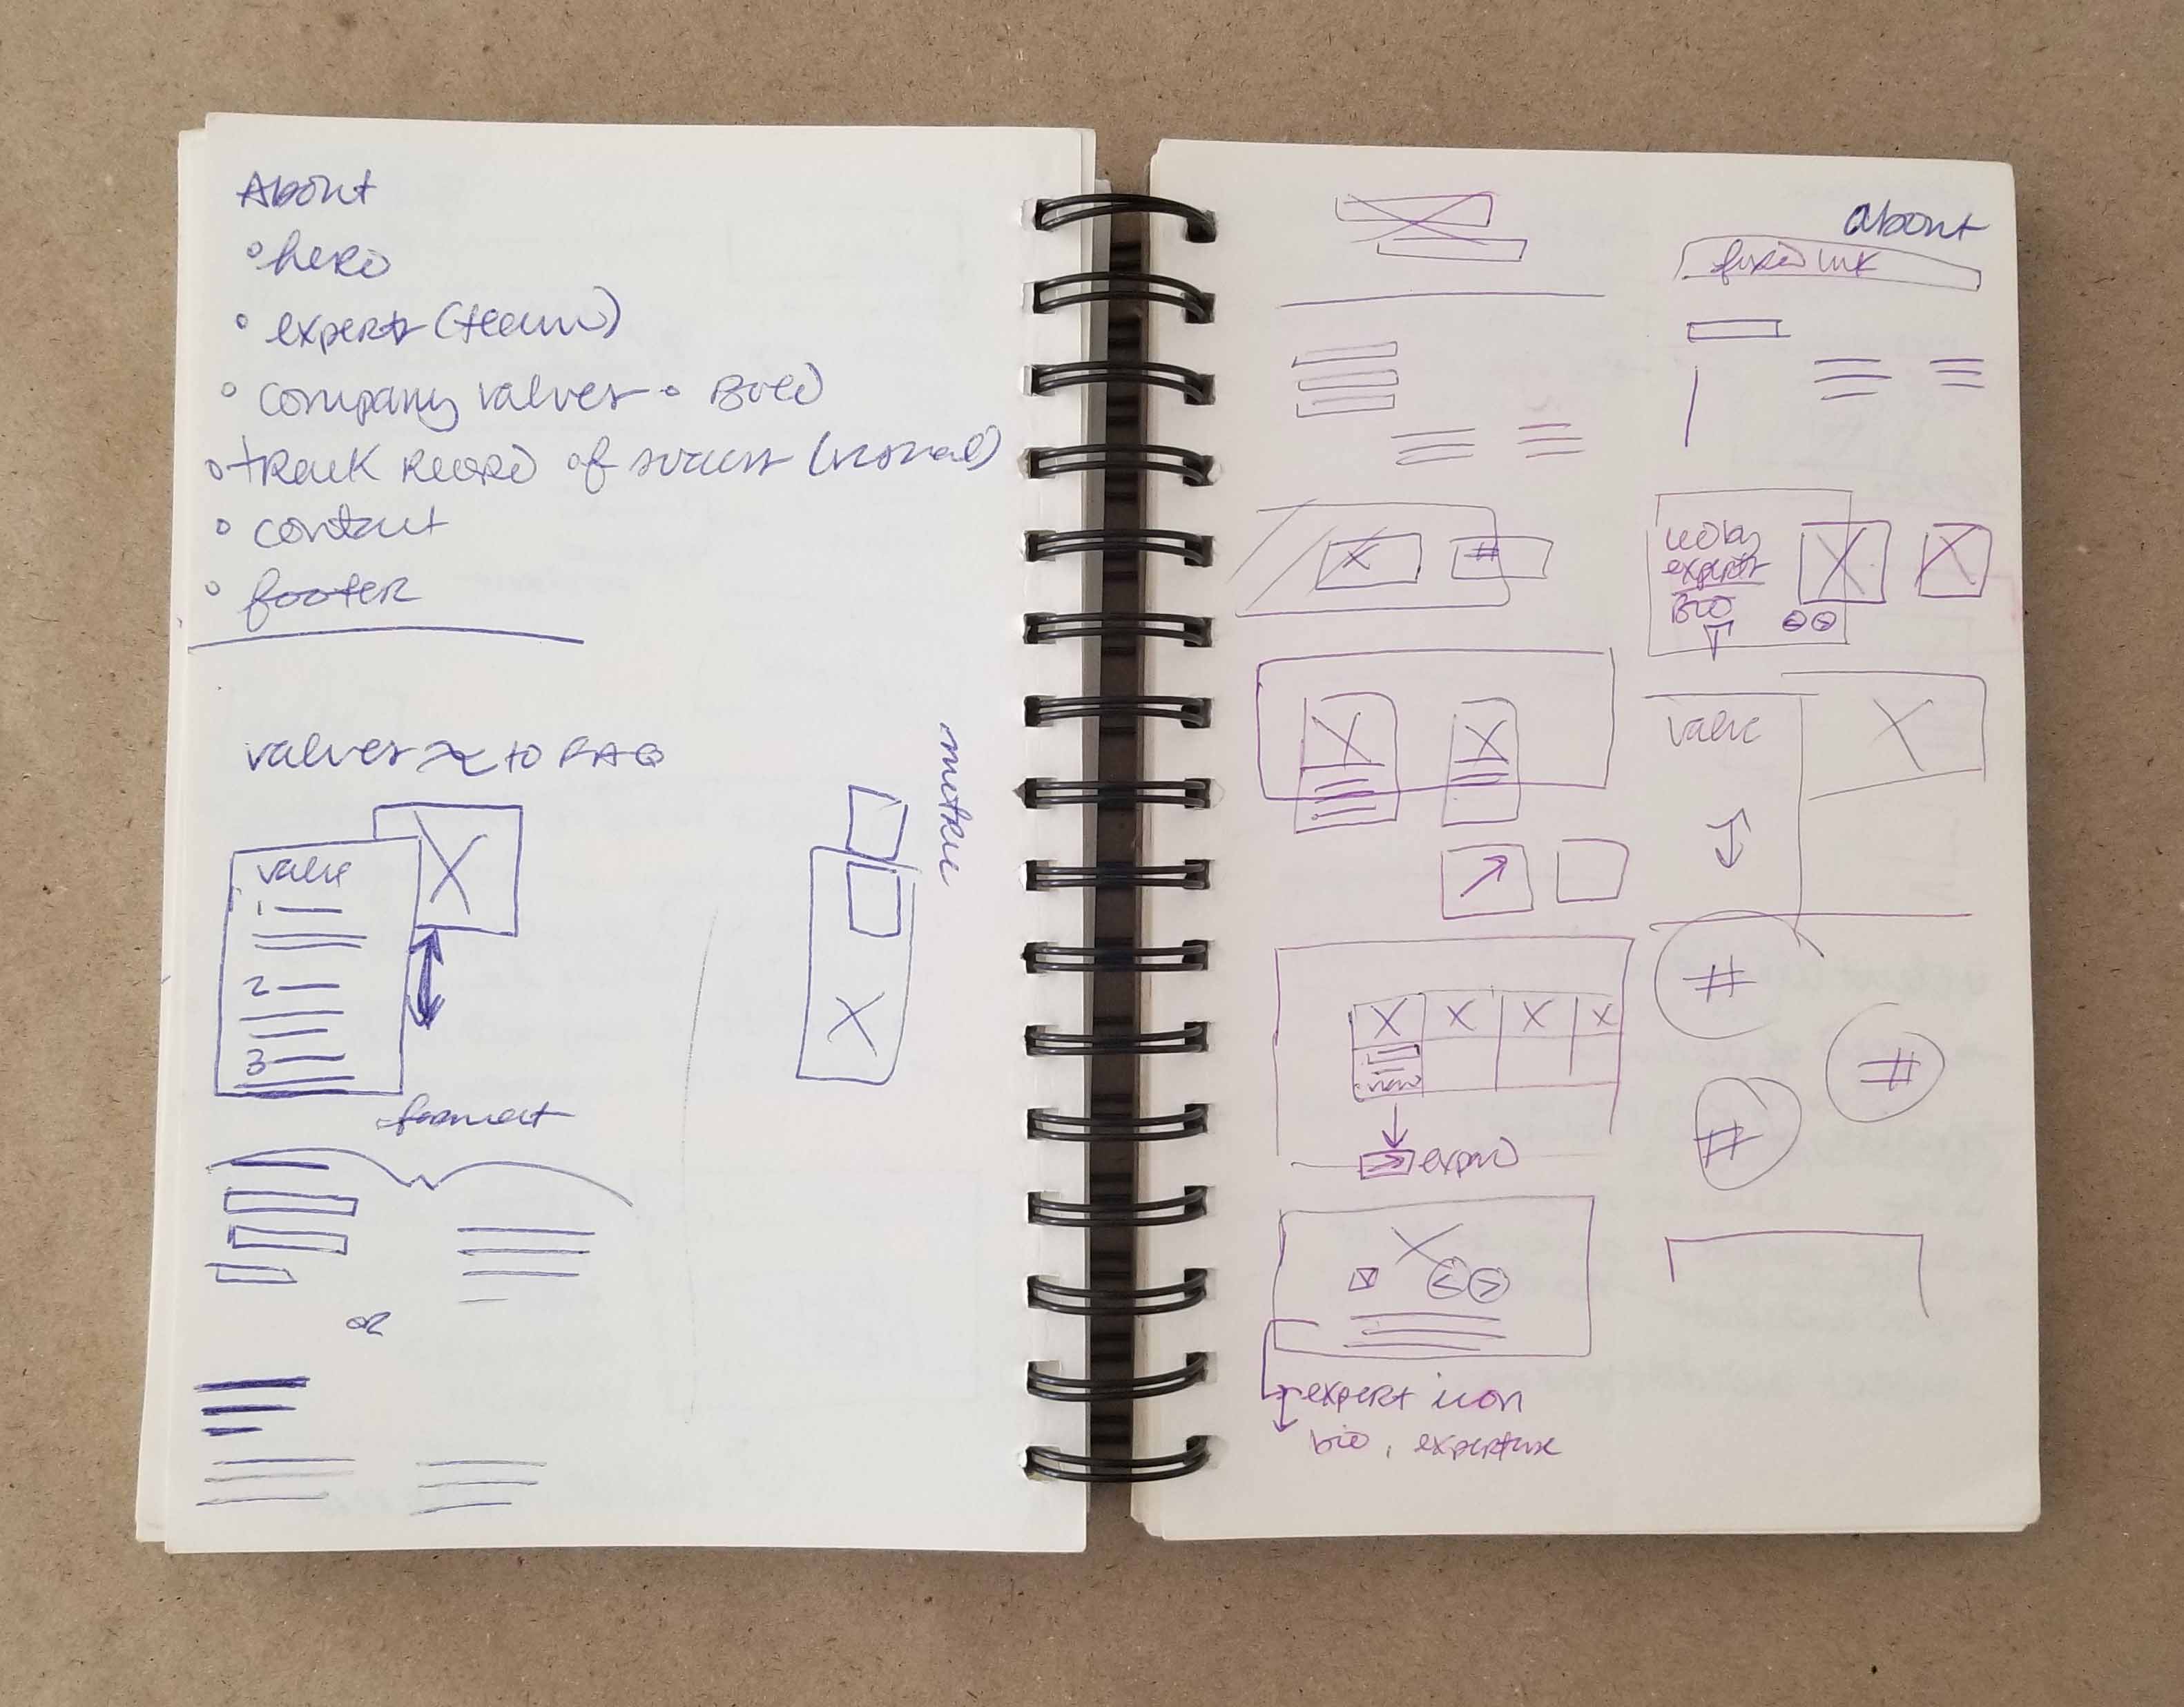 About
• hero
• experts (team)
• company values • Bold
• track record of success (normal)
• contact
• footer
values ≈ to FAQ
value
1
2
3
metric
format
or
about
X
#
experts
Bio
value
view
expand
#
#
#
< >
expert icon
bio, expertise